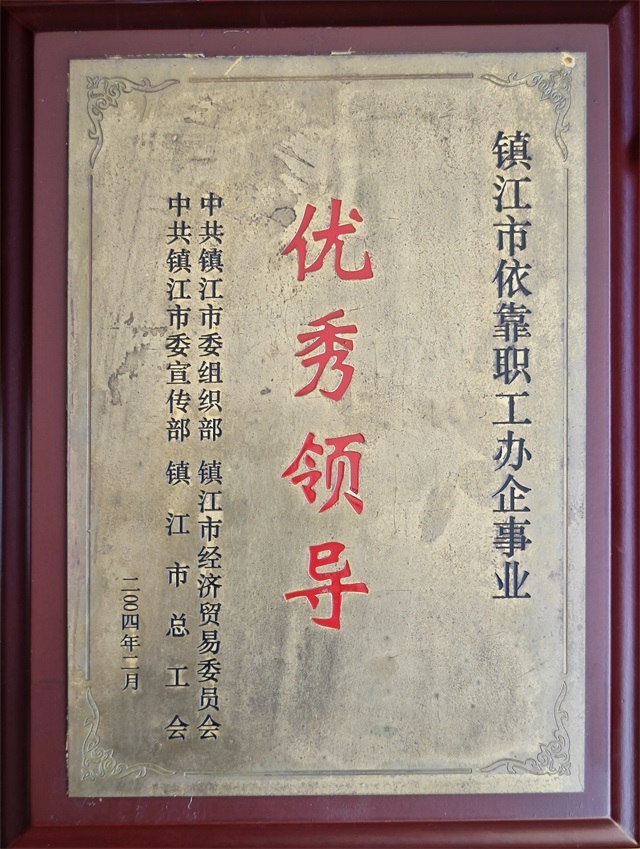 镇江市依靠职工办企事业
优秀领导
中共镇江市委组织部 镇江市经济贸易委员会
中共镇江市委宣传部 镇江市总工会
二〇〇四年二月